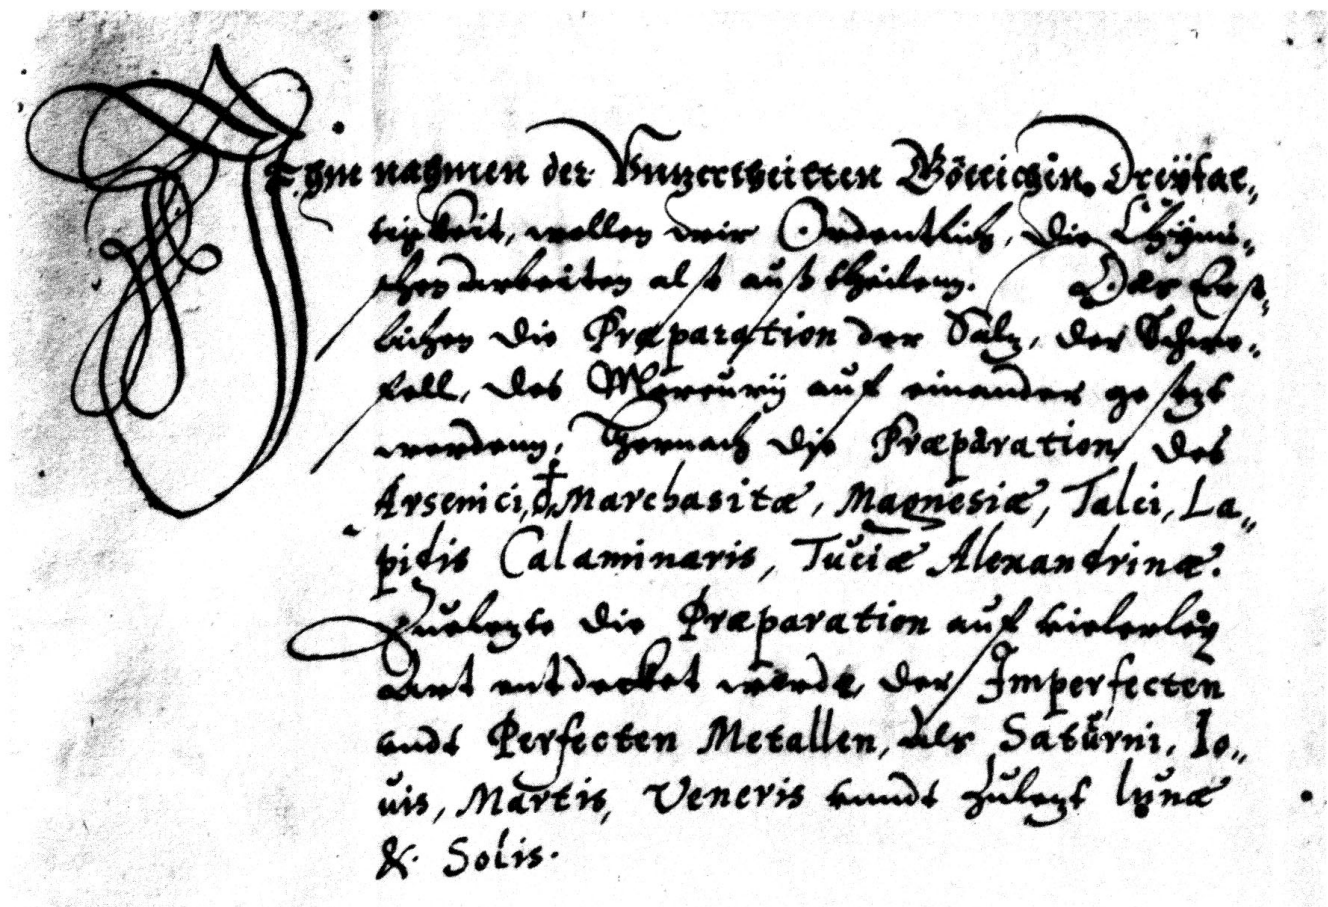 Ihm nahmen der Vnzertheilten Göttlichen Dreÿfal„
tigkeit, wollen wir Ordentlich, die Chÿmi„
schen arbeiten alß außtheilenn. Das Erst„
lichen die Præparation der Saltz, der Schwe„
fell, des Mercurij auf einander gesetzt
werdenn, Hernach die Præparation des
Arsenici, ♁, Marchasitæ, Magnesiæ, Talci, La„
pidis Calaminaris, Tuciæ Alexandrinæ.
Zueletzte die Præparation auf vielerleÿ
Art entdecket werde, der Imperfecten
undt Perfecten Metallen, als Saturni, Io„
uis, Martis, Veneris vnndt zuletzt lunæ
&. Solis.